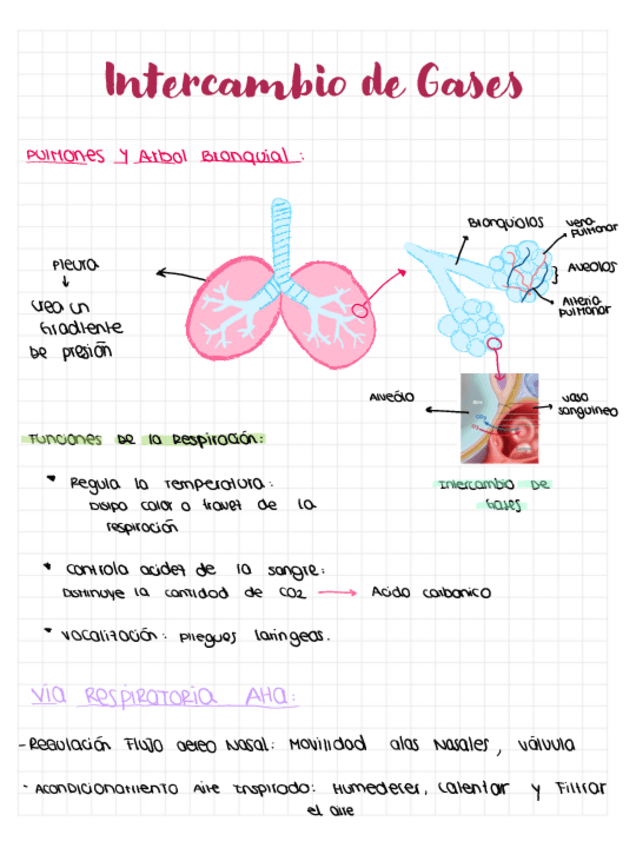 Intercambio de Gases
Pulmones y Arbol Bronquial:
Bronquiolos
vena
Pulmonar
Aveolos
Arteria
pulmonar
Pleura
crea un
Gradiente
de presión
Alveólo
vaso
sanguíneo
Intercambio de
Gases
Funciones de la Respiración:
* Regula la Temperatura:
Disipa calor a travez de la
respiración
* Controla acidez de la sangre:
Disminuye la cantidad de CO2 → Acido carbonico
* Vocalización: Pliegues laringeos.
Vía Respiratoria Alta:
- Regulación Flujo aereo Nasal: Movilidad alas Nasales, válvula
- Acondicionamiento Aire Inspirado: Humedecer, calentar y Filtrar
el aire